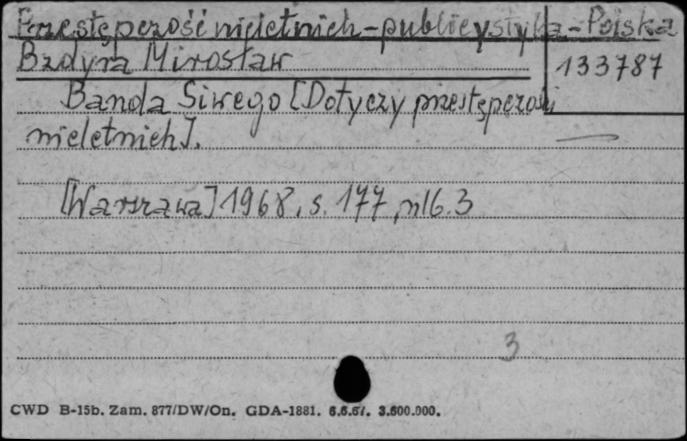 Przestępczość nieletnich - publicystyka - Polska
Bzdyra Mirosław
133787
Banda Siwego [Dotyczy przestępczości
nieletnich].
[Warszawa] 1968, s. 177, nlb. 3
3
CWD B-15b. Zam. 877/DW/On. GDA-1881. 6.6.67. 3.600.000.